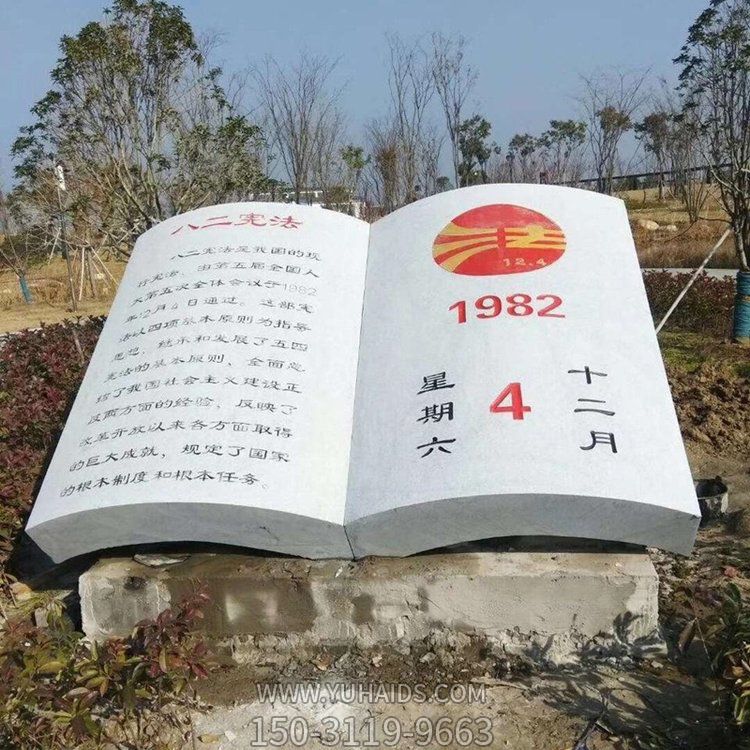 八二宪法
八二宪法是我国的现
行宪法，由第五届全国人
大第五次全体会议于1982
年12月4日通过。这部宪
法以四项基本原则为指导
思想，继承和发展了五四
宪法的基本原则，全面总
结了我国社会主义建设正
反两方面的经验，反映了
改革开放以来各方面取得
的巨大成就，规定了国家
的根本制度和根本任务。
法
12.4
1982
十二月
4
星期六
WWW.YUHAIDS.COM
150-3119-9663